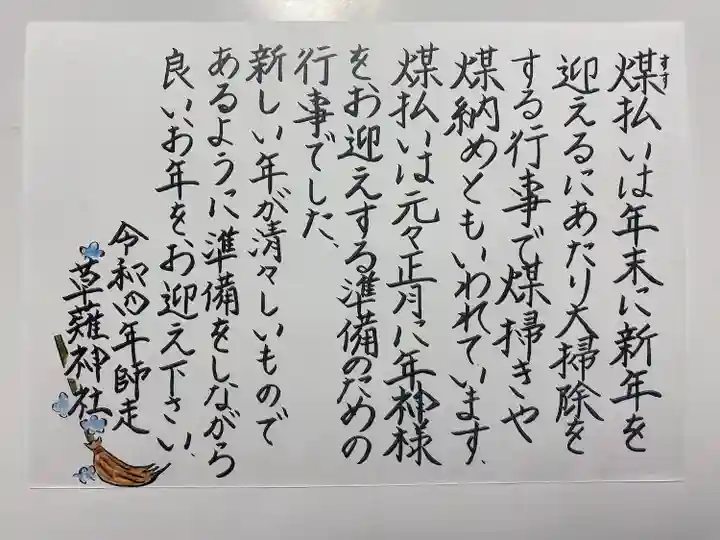 煤払いは年末に新年を
すす
迎えるにあたり大掃除を
する行事で煤掃きや
煤納めともいわれています.
煤払いは元々正月に年神様
をお迎えする準備のための
行事でした、
新しい年が清々しいもので
あるように準備をしながら
良いお年をお迎え下さい.
令和四年師走
草薙神社